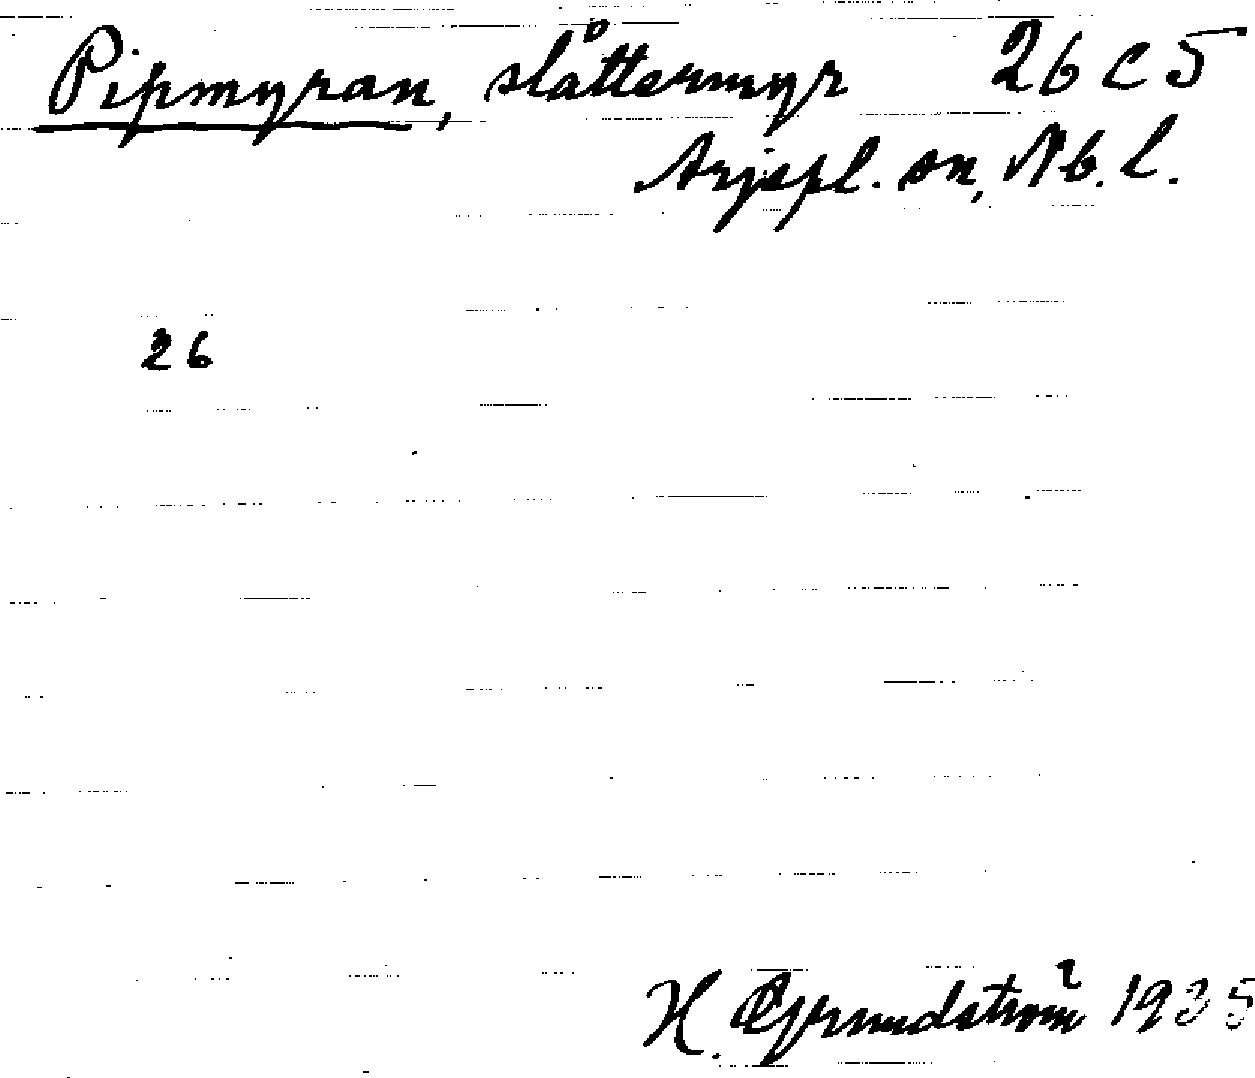 Pipmyran, slåttermyr 26 C 5
Arjepl. sn, Nb. l.
26
H. Grundström 1935